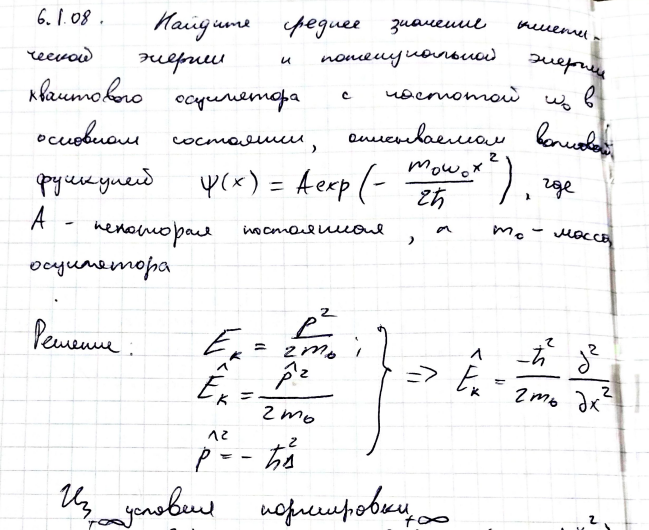 6.1.08. Найдите среднее значение кинети-
ческой энергии и потенциальной энергии
квантового осциллятора с частотой ω₀ в
основном состоянии, описываемом волновой
функцией ψ(x) = A exp(- m₀ω₀x² / 2ħ), где
A - некоторая постоянная, а m₀ - масса
осциллятора
Решение: E_к = p² / 2m₀ ;
Ê_к = p̂² / 2m₀ } => Ê_к = -ħ² / 2m₀ ∂² / ∂x²
p̂² = - ħ²Δ
Из условия нормировки
+∞ +∞